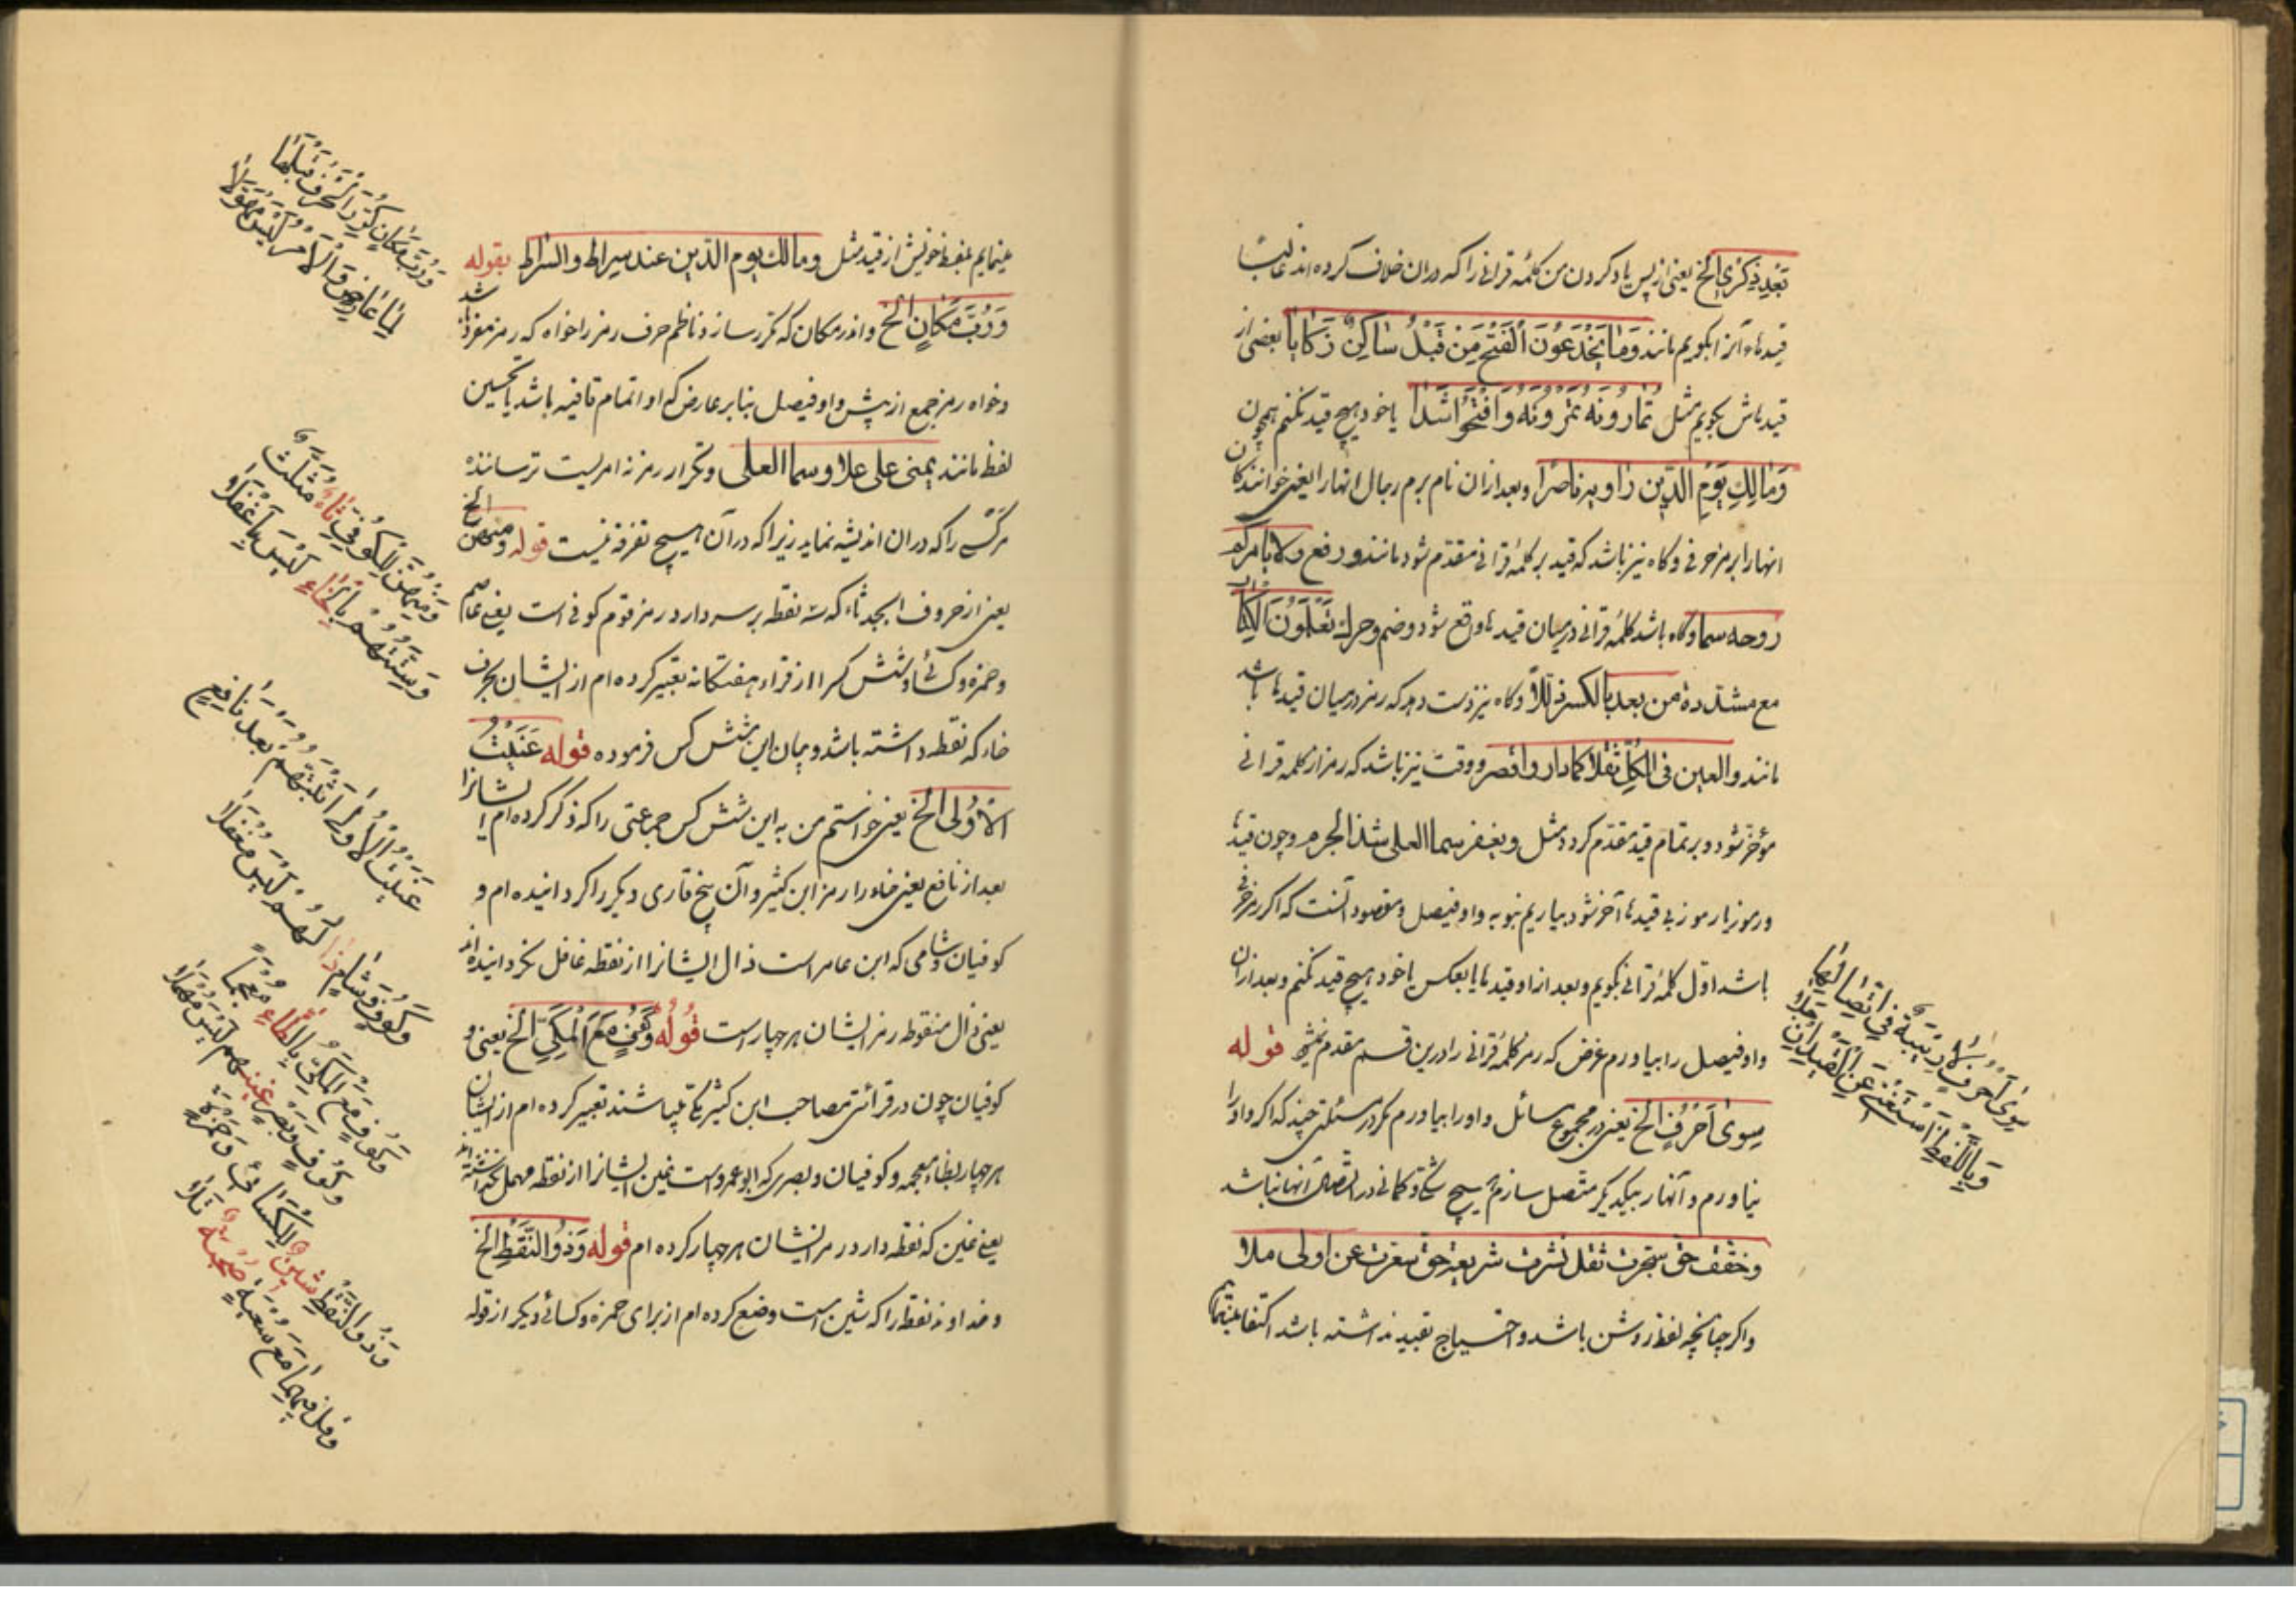 بَعْدِ ذِكْرِي الخ یعنی از پس یاد کردن من کلمهٔ قرانی را که دران خلاف کرده اند غالبًا
قیدهاء آنرا بگویم مانند وَمَا يَخْدَعُونَ الْفَتْحُ مِنْ قَبْلُ سَاكِنٌ ذَكَا یا بعضی از
قیدهاش بگویم مثل تُمَارُونَهُ تَمْرُونَهُ وَافْتَحُوا شَذَا یا خود هیچ قید نکنم همچون
وَمَالِكِ يَوْمِ الدِّينِ رَاوِيهِ نَاصِرٌ و بعد ازان نام برم رجال انهارا یعنی خوانندکان
انهارا برمز حرفی وکاه نیز باشد که قید بر کلمهٔ قرانی مقدّم شود مانند ورفع ولا یامرکم
روحه سما وکاه باشد کلمهٔ قرانی درمیان قیدها واقع شود وضم وحرك تَعْلَمُونَ الْكِتَابَ
مع مشددة من بعد بالكسر ذللا وکاه نیز دست دهد که رمز درمیان قیدها باشد
مانند والعين في الكل ثقلا كما دار واقصر و وقت نیز باشد که رمز از کلمه قرانی
مؤخر شود و بر تمام قید مقدّم کردد مثل ويغفر سما العلى شذا الجزم وچون قیدها
ورموز یا رموز بی قیدها آخر شود بیاریم نوبه واو فیصل ومقصود آنست که اکر رمز حرفی
باشد اوّل کلمهٔ قرانی بگویم وبعد ازاو قیدها یا بعکس یا خود هیچ قید نکنم وبعد ازان
واو فیصل را بیاورم غرض که رمز کلمهٔ قرانی را درین قسم مقدم قوله
سِوَى اَحْرُفٍ الخ یعنی در مجموع مسائل واو را بیاورم مکر در مسئلتی چند که اکر واو را
نیاورم وآنهارا بیکدیکر متّصل سازم هیچ شک و کمانی در اتّصال آنها نباشد
وخفف حق سجرت ثقل نشرت شريعة حق سعرت عن اولى ملا
واکر چنانچه لفظ روشن باشد و احتیاج بقید نداشته باشد اکتفا
سِوَى اَحْرُفٍ لَا رِيبَةٌ فِي اتِّصَالِهَا
وَبِاللَّفْظِ اَسْتَغْنِي عَنِ الْقَيْدِ اِنْ جَلَا
مینمایم بلفظ خویش از قید مثل ومالك يوم الدين عند سراط والسراط بقوله
وَرُبَّ مَكَانٍ الخ واندر مکان که مکرر سازد ناظم حرف رمز را خواه که رمز مفرد باشد
وخواه رمز جمع از پیش واو فیصل بنابر عارض که او اتمام قافیه باشد یا تحسین
لفظ مانند يمني على علا وسما العلى و تکرار رمز نه امریست ترساننده
مرکسی را که دران اندیشه نماید زیرا که درآن هیچ تفرقه نیست قوله ومنهن الخ
یعنی از حروف ابجد ثاء که سه نقطه بر سر دارد رمز قوم کوفی است یعنی عاصم
وحمزه وکسائی وشش کس را از قراء هفتکانه تعبیر کرده ام از ایشان بحرف
خاء که نقطه داشته باشد وبیان این شش کس فرموده قوله عَنَيْتُ
الْاُولَى الخ یعنی خواستم من به این شش کس جمعی را که ذکر کرده ام ایشانرا
بعد از نافع یعنی خاء را رمز ابن کثیر و آن پنج قاری دیکر را کردانیده ام و
کوفیان وشامی که ابن عامر است ذال ایشانرا از نقطه غافل نکردانیده اند
یعنی ذال منقوطه رمز ایشان هر چهار است قوله وَكُوفٍ مَعَ الْمَكِّيِّ الخ یعنی و
کوفیان چون در قرائتی مصاحب ابن کثیر مکّی باشند تعبیر کرده ام از ایشان
هر چهار بظاء معجمه وکوفیان وبصری که ابو عمرو است غین ایشانرا از نقطه مهمل نکذاشته اند
یعنی غین که نقطه دارد رمز ایشان هر چهار کرده ام قوله وَذُو النَّقْطِ الخ
وخداوند نقطه را که شین است وضع کرده ام از برای حمزه وکسائی دیکر از قوله
وَرُبَّ مَكَانٍ كُرِّرَ الْحَرْفُ قَبْلَهَا
لِمَا عَارِضٍ وَالْاَمْرُ لَيْسَ مُهَوِّلَا
وَمِنْهُنَّ لِلْكُوفِيِّ ثَاءٌ مُثَلَّثٌ
وَسِتَّتُهُمْ بِالْخَاءِ لَيْسَ بِاَغْفَلَا
عَنَيْتُ الْاُولَى اَثْبَتُّهُمْ بَعْدَ نَافِعٍ
وَكُوفٍ وَشَامٍ ذَالُهُمْ لَيْسَ مُغْفَلَا
وَكُوفٍ مَعَ الْمَكِّيِّ بِالظَّاءِ مُعْجَمًا
وَكُوفٍ وَبَصْرٍ غَيْنُهُمْ لَيْسَ مُهْمَلَا
وَذُو النَّقْطِ شِينٌ لِلْكِسَائِي وَحَمْزَةٍ
وَقُلْ فِيهِمَا مَعَ شُعْبَةٍ صُحْبَةٌ تَلَا